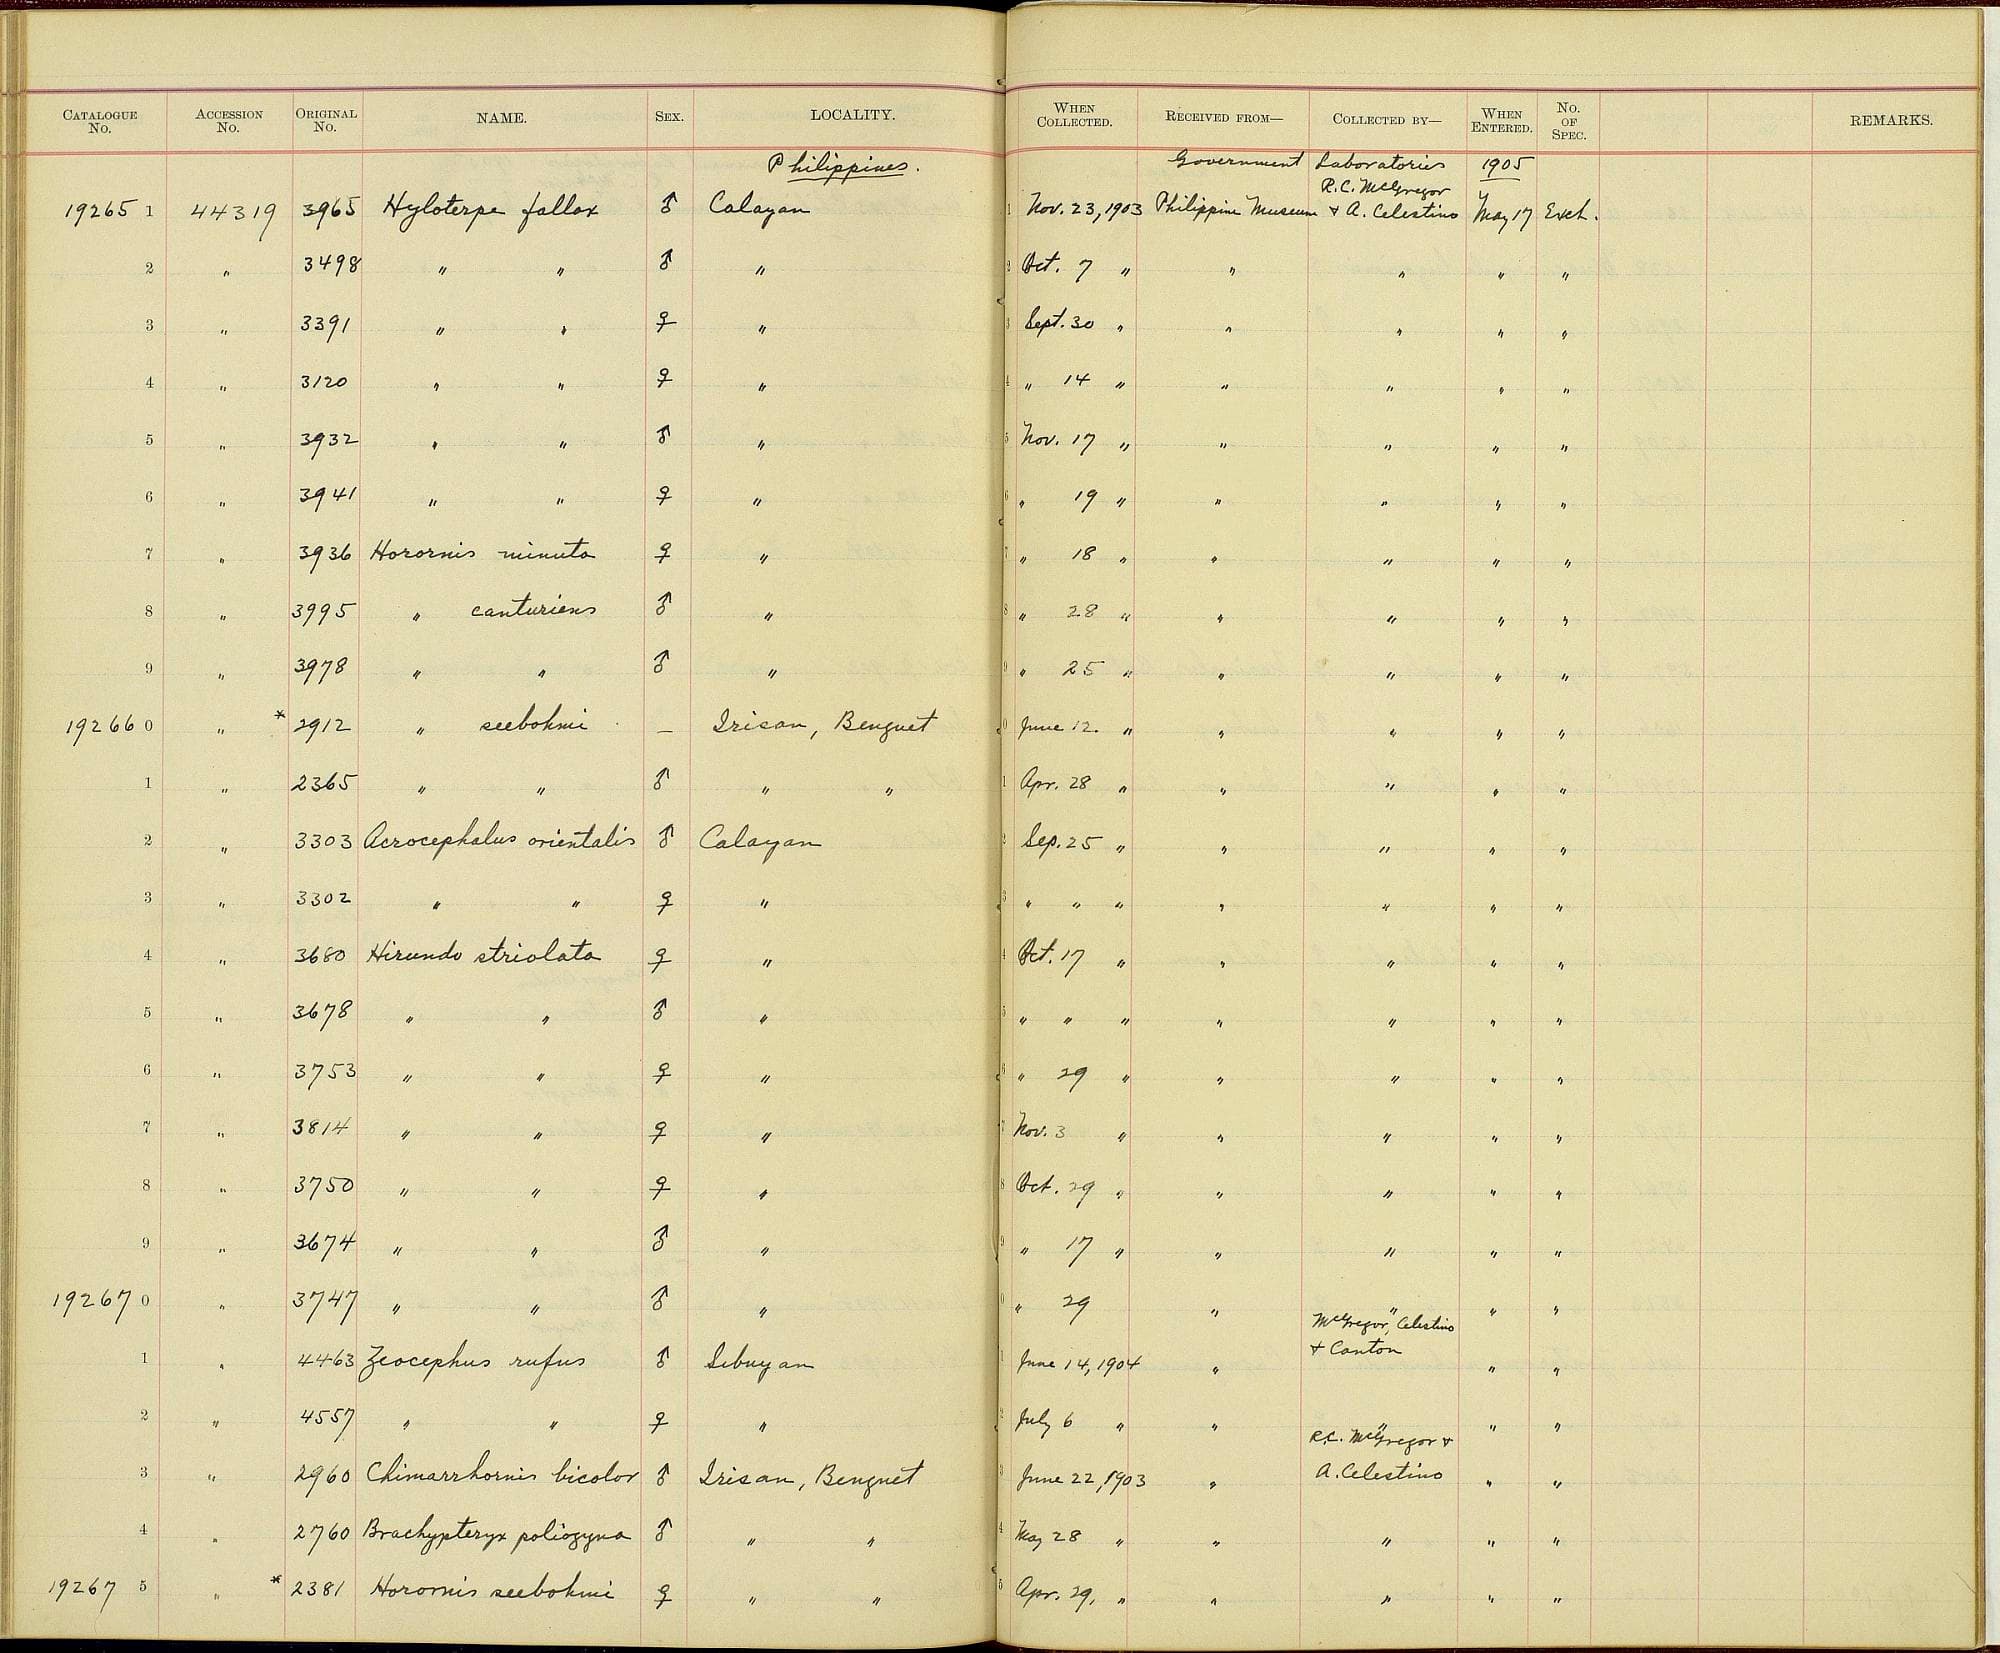 CATALOGUE No. ACCESSION No. ORIGINAL No. NAME. SEX. LOCALITY. WHEN COLLECTED. RECEIVED FROM— COLLECTED BY— WHEN ENTERED. No. OF SPEC. REMARKS.
Philippines. Government Laboratories 1905
R.C. McGregor
19265 1 44319 3965 Hyloterpe fallax ♂ Calayan 1 Nov. 23, 1903 Philippine Museum + A. Celestino May 17 Exch.
2 " 3498 " " ♂ " 2 Oct. 7 " " " " "
3 " 3391 " " ♀ " 3 Sept. 30 " " " " "
4 " 3120 " " ♀ " 4 " 14 " " " " "
5 " 3932 " " ♂ " 5 Nov. 17 " " " " "
6 " 3941 " " ♀ " 6 " 19 " " " " "
7 " 3936 Horornis minuta ♀ " 7 " 18 " " " " "
8 " 3995 " canturiens ♂ " 8 " 28 " " " " "
9 " 3978 " " ♂ " 9 " 25 " " " " "
19266 0 " * 2912 " seebohmi — Irisan, Benguet 0 June 12. " " " " "
1 " 2365 " " ♂ " " 1 Apr. 28 " " " " "
2 " 3303 Acrocephalus orientalis ♂ Calayan 2 Sep. 25 " " " " "
3 " 3302 " " ♀ " 3 " " " " " " "
4 " 3680 Hirundo striolata ♀ " 4 Oct. 17 " " " " "
5 " 3678 " " ♂ " 5 " " " " " " "
6 " 3753 " " ♀ " 6 " 29 " " " " "
7 " 3814 " " ♀ " 7 Nov. 3 " " " " "
8 " 3750 " " ♀ " 8 Oct. 29 " " " " "
9 " 3674 " " ♂ " 9 " 17 " " " " "
19267 0 " 3747 " " ♂ " 0 " 29 " " " "
McGregor, Celestino
1 " 4463 Zeocephus rufus ♂ Sibuyan 1 June 14, 1904 " + Canton " "
2 " 4557 " " ♀ " 2 July 6 " " " " "
R.C. McGregor +
3 " 2960 Chimarrhornis bicolor ♂ Irisan, Benguet 3 June 22, 1903 " A. Celestino " "
4 " 2760 Brachypteryx poliogyna ♂ " " 4 May 28 " " " " "
19267 5 " * 2381 Horornis seebohmi ♀ " " 5 Apr. 29, " " " " "